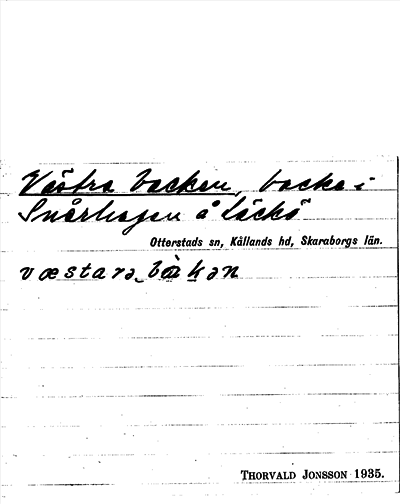 Västra backen, backe i
Snårhagen å Läckö
Otterstads sn, Kållands hd, Skaraborgs län.
væstarə bàkən
THORVALD JONSSON 1935.